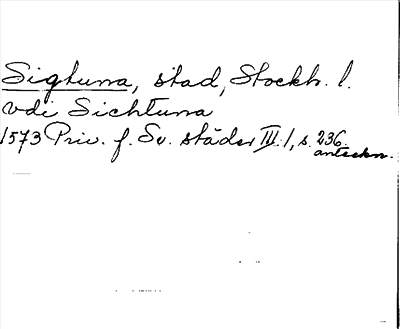 Sigtuna, stad, Stockh. l.
vdi Sichtuna
1573 Priv. f. Sv. städer III. 1, s. 236.
anteckn.